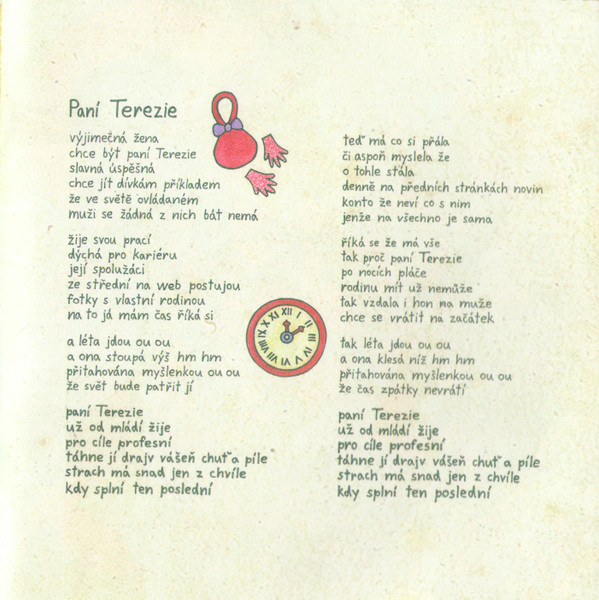 Paní Terezie
výjimečná žena
chce být paní Terezie
slavná úspěšná
chce jít dívkám příkladem
že ve světě ovládaném
muži se žádná z nich bát nemá
žije svou prací
dýchá pro kariéru
její spolužáci
ze střední na web postujou
fotky s vlastní rodinou
na to já mám čas říká si
a léta jdou ou ou
a ona stoupá výš hm hm
přitahována myšlenkou ou ou
že svět bude patřit jí
paní Terezie
už od mládí žije
pro cíle profesní
táhne jí drajv vášeň chuť a píle
strach má snad jen z chvíle
kdy splní ten poslední
teď má co si přála
či aspoň myslela že
o tohle stála
denně na předních stránkách novin
konto že neví co s ním
jenže na všechno je sama
říká se že má vše
tak proč paní Terezie
po nocích pláče
rodinu mít už nemůže
tak vzdala i hon na muže
chce se vrátit na začátek
tak léta jdou ou ou
a ona klesá níž hm hm
přitahována myšlenkou ou ou
že čas zpátky nevrátí
paní Terezie
už od mládí žije
pro cíle profesní
táhne jí drajv vášeň chuť a píle
strach má snad jen z chvíle
kdy splní ten poslední
XII
I
II
III
IV
V
VI
VII
VIII
IX
X
XI